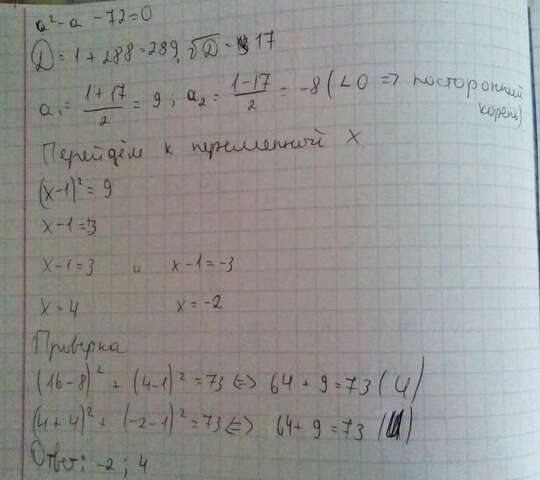 a² - a - 72 = 0
D = 1 + 288 = 289, √D = 17
a₁ = (1+17)/2 = 9 ; a₂ = (1-17)/2 = -8 (<0 => посторонний корень)
Перейдём к переменной x
(x-1)² = 9
x-1 = ±3
x-1 = 3 и x-1 = -3
x = 4 x = -2
Проверка
(16-8)² + (4-1)² = 73 <=> 64 + 9 = 73 (4)
(4+4)² + (-2-1)² = 73 <=> 64 + 9 = 73
Ответ: -2 ; 4